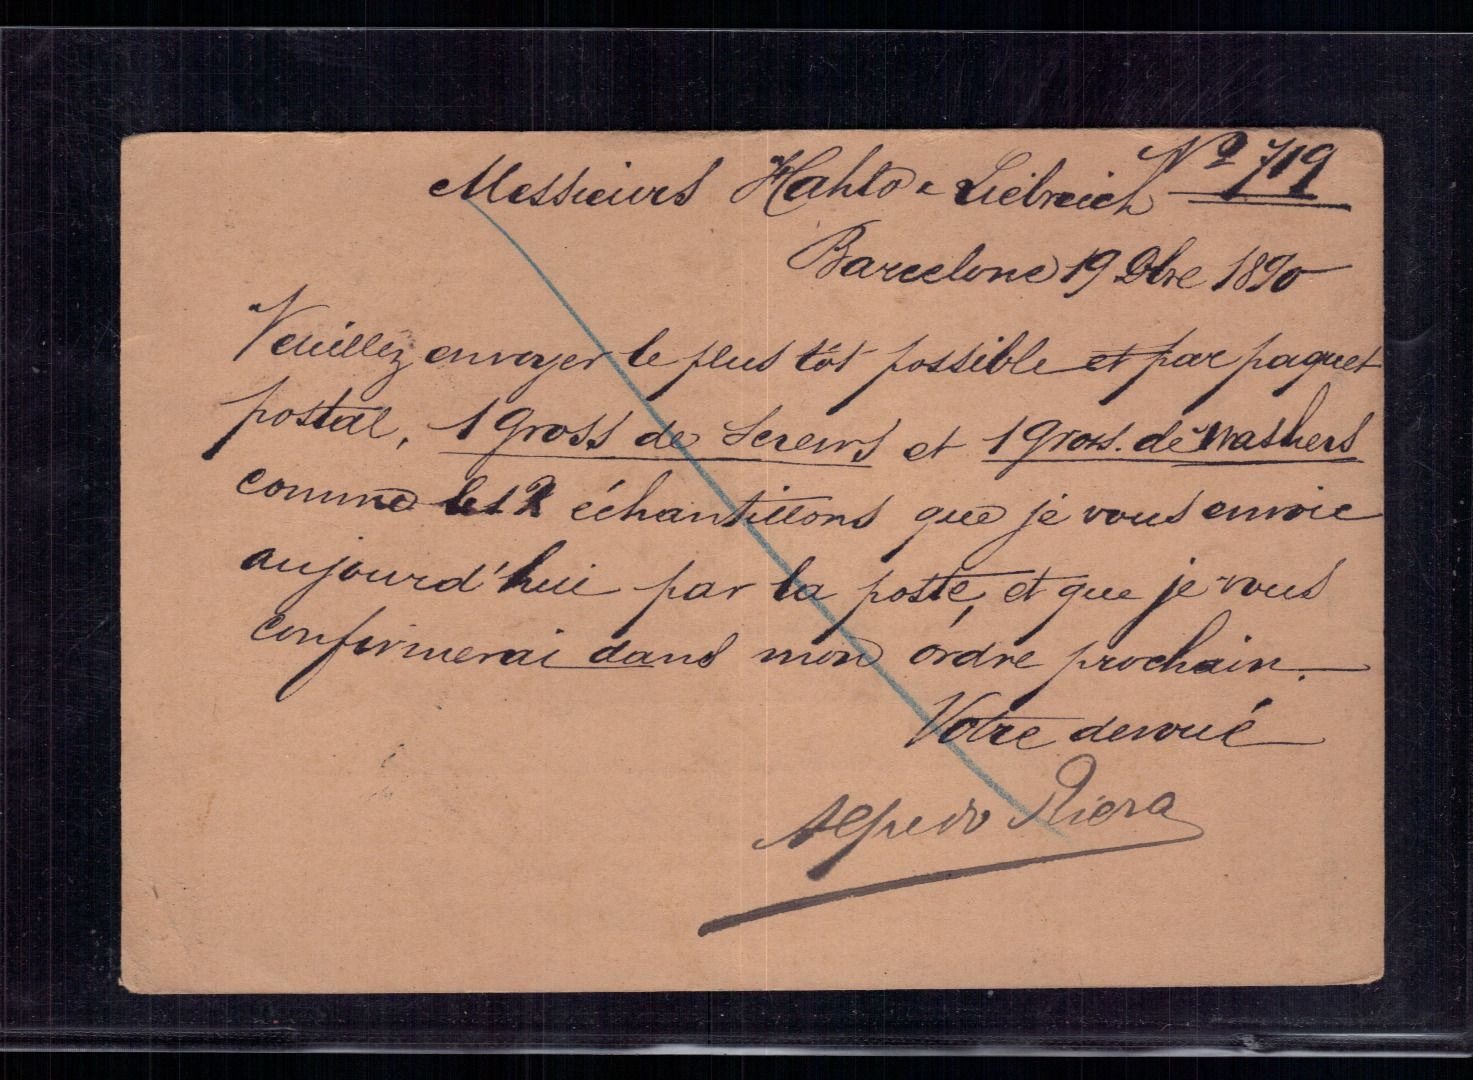 Nº 719
Messieurs Hahlo & Liebreich
Barcelone 19 Dbre 1890
Veuillez envoyer le plus tôt possible et par paquet
postal, 1 Gross de Screws et 1 Gross. de Washers
comme les 2 échantillons que je vous envoie
aujourd'hui par la poste et que je vous
confirmerai dans mon ordre prochain.
Votre devoué
Alfredo Riera